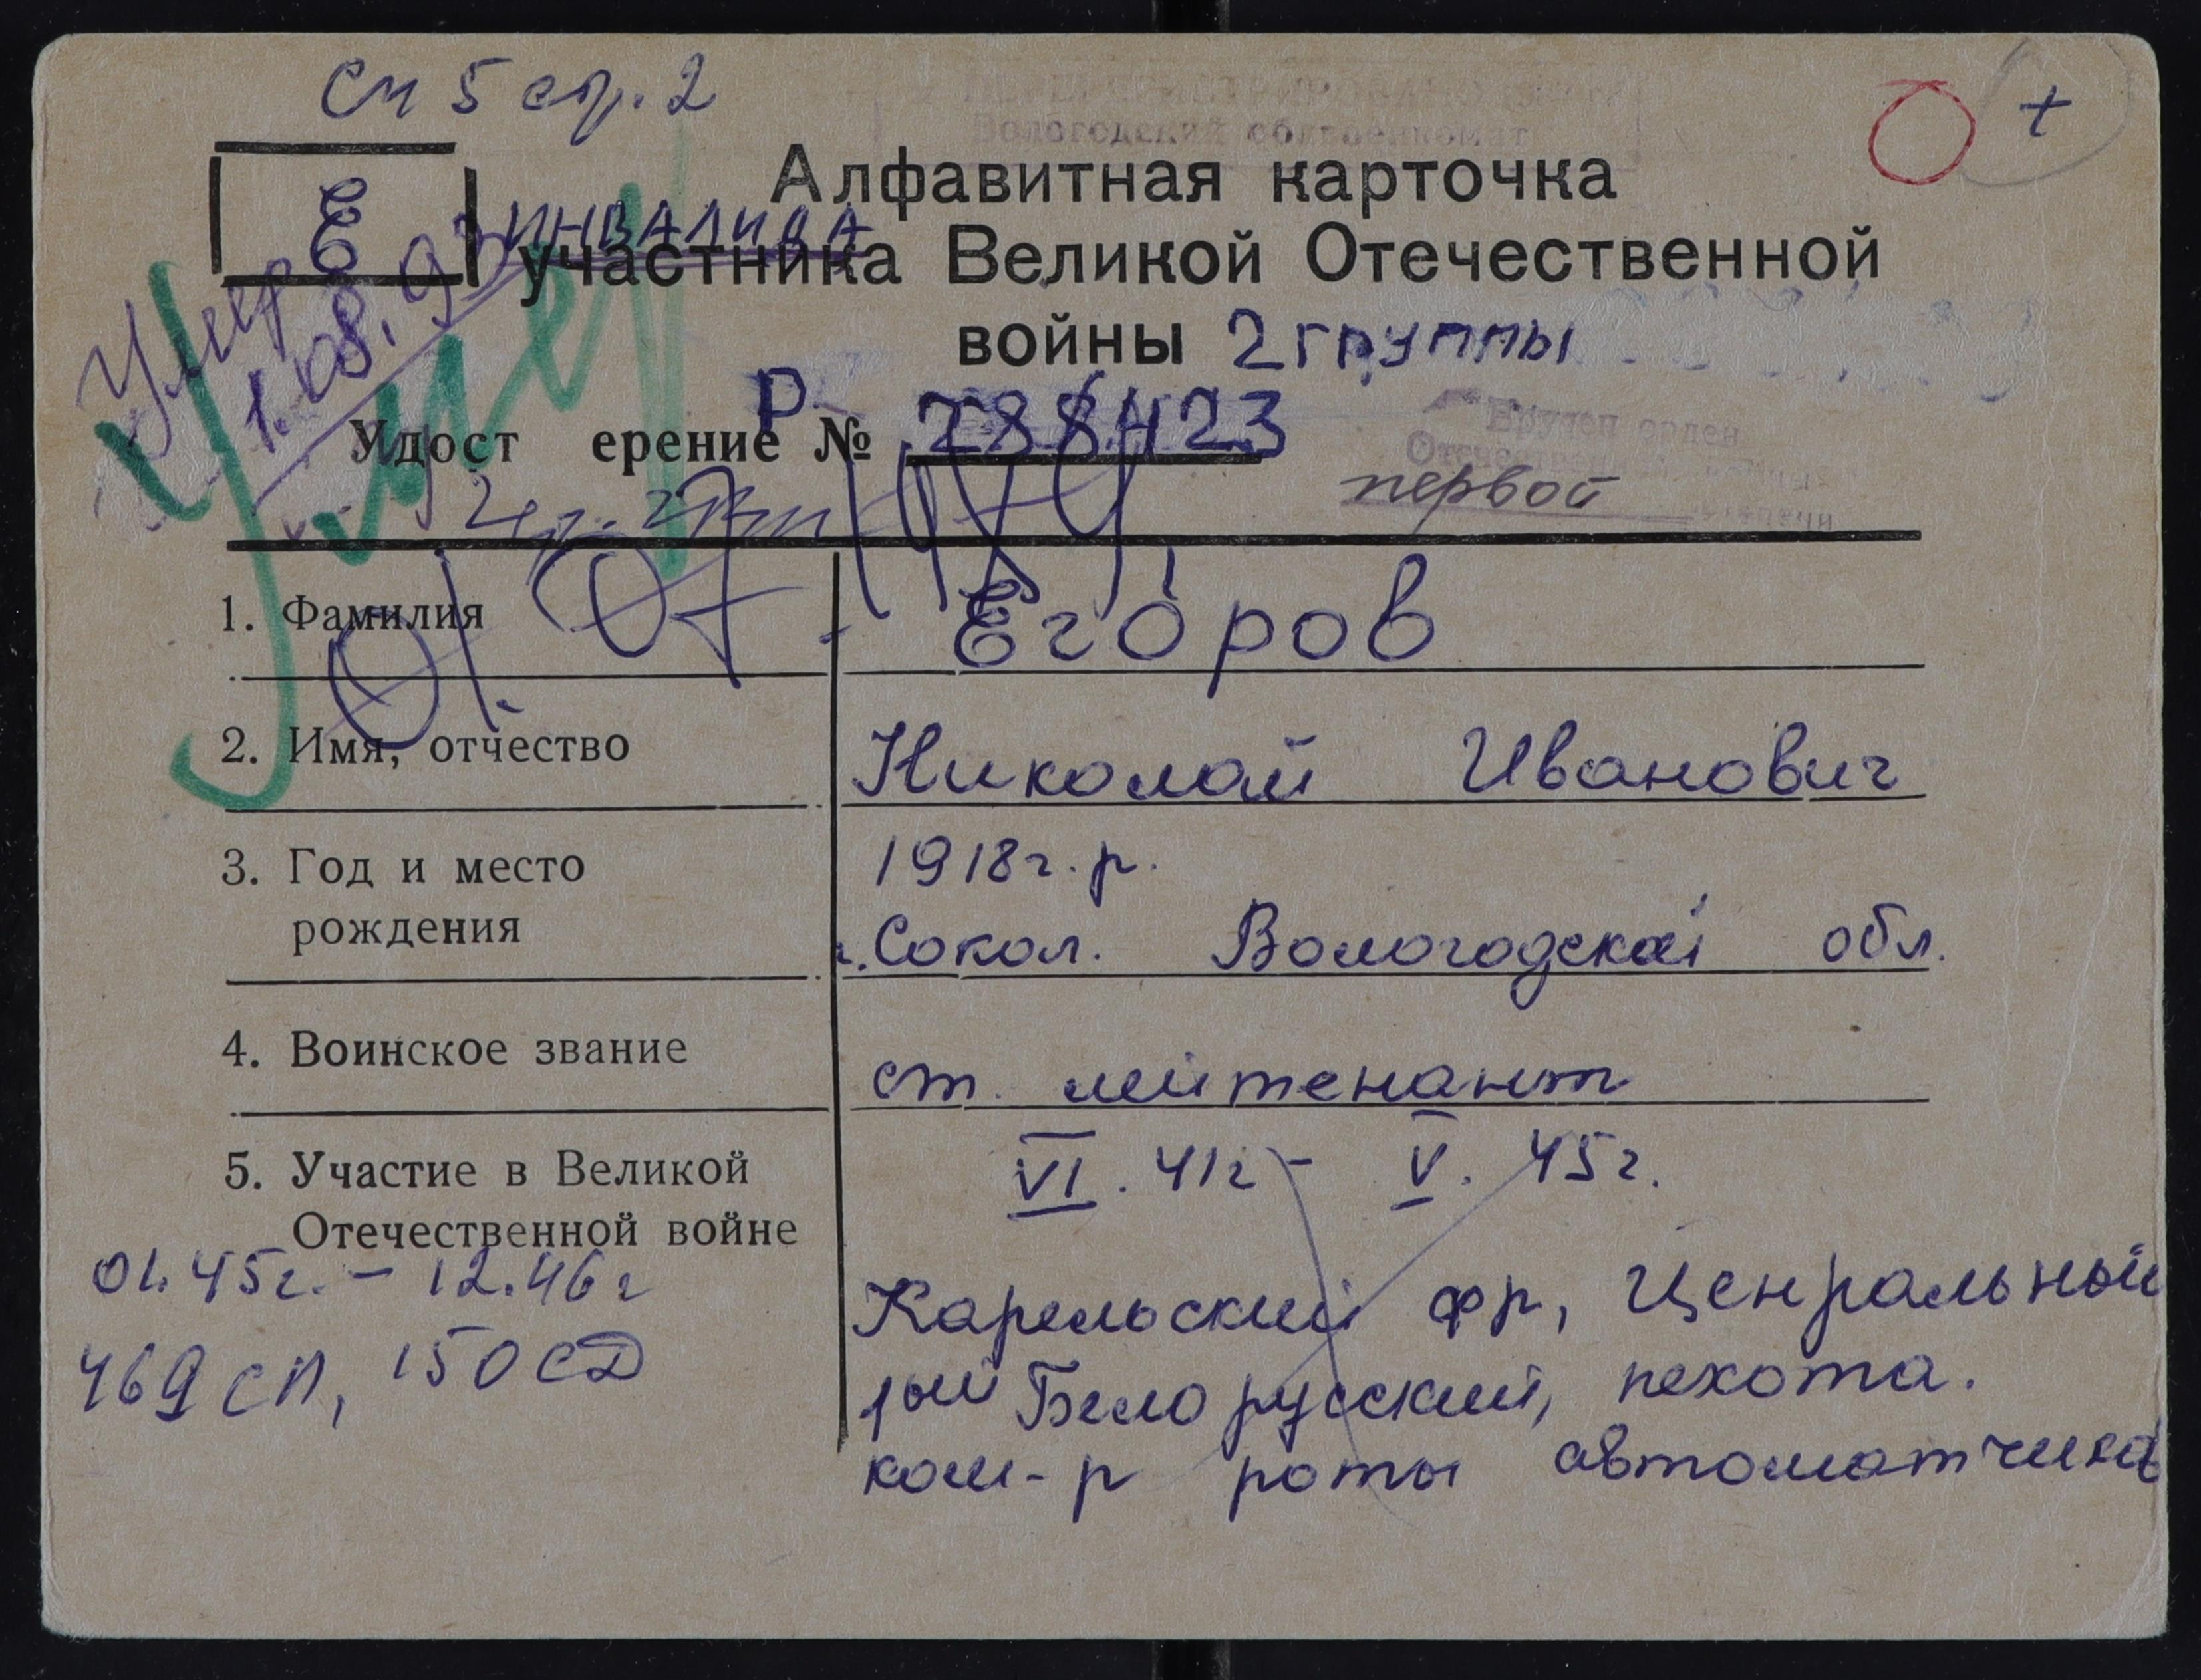 См 5 стр. 2
+
Вологодский облвоенкомат
Алфавитная карточка
Е
ИНВАЛИДА
участника Великой Отечественной
войны 2 группы
Умер
1.08.93
Умер
Р
Удост ерение № 288423
Вручен орден
Отечественной войны
первой степени
1. Фамилия Егоров
2. Имя, отчество Николай Иванович
3. Год и место 1918 г. р.
рождения г. Сокол. Вологодской обл.
4. Воинское звание ст. лейтенант
5. Участие в Великой VI. 41г - V. 45г.
Отечественной войне
01.45г. - 12.46г
Карельский фр, Ценральный
469 СП, 150 СД
1ый Белорусский, пехота.
ком-р роты автоматчиков